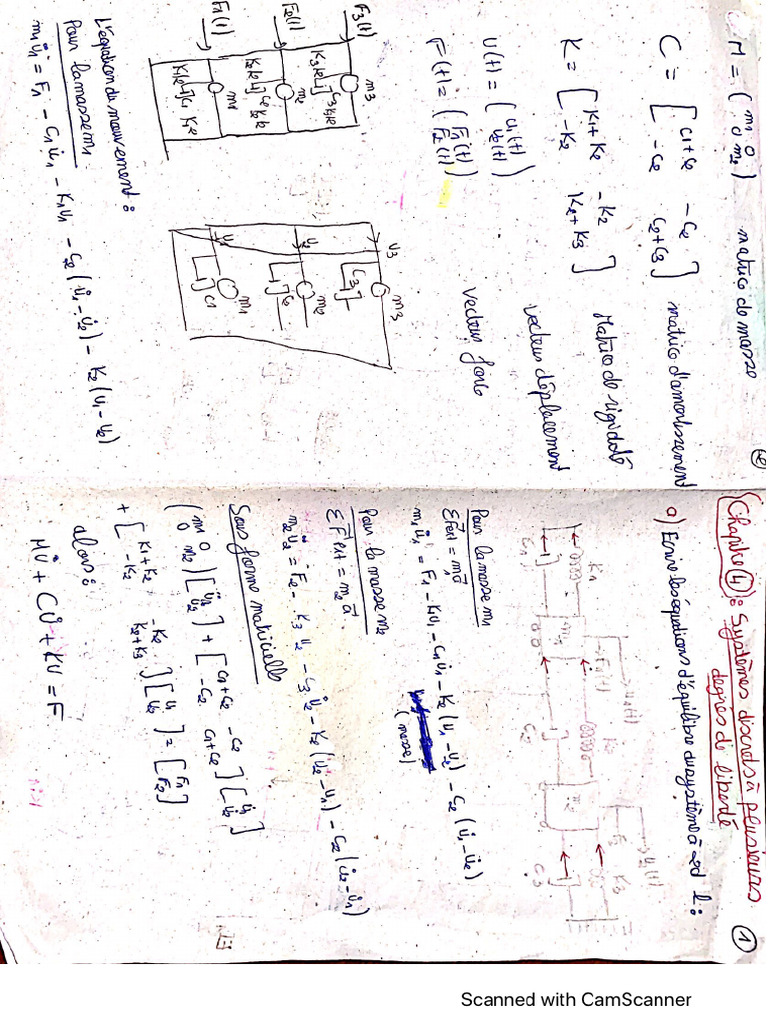 Chapitre 4 : Systèmes discrets à plusieurs
degrés de liberté
1
a) Ecrire les équations d'équilibre du système à 2d l :
K1
C1
m1
F1(t)
u1(t)
K2
C2
m2
F2
K3
C3
u2(t)
Pour la masse m1
ΣFext = ma
m1ü1 = F1 - K1u1 - C1u̇1 - K2(u1 - u2) - C2(u̇1 - u̇2)
(masse)
Pour la masse m2
ΣFext = m2a.
m2ü2 = F2 - K3u2 - C3u̇2 - K2(u2 - u1) - C2(u̇2 - u̇1)
Sous forme matricielle
(m1 0
0 m2) [ü1
ü2] + [C1+C2 -C2
-C2 C1+C2] [u̇1
u̇2]
+ [K1+K2 -K2
-K2 K2+K3] [u1
u2] = [F1
F2]
alors :
MÜ + CU̇ + KU = F
2
M = (m1 0
0 m2) matrice de masse
C = [C1+C2 -C2
-C2 C2+C3] matrice d'amortissement
K = [K1+K2 -K2
-K2 K2+K3] Matrice de rigidité
U(t) = (u1(t)
u2(t)) vecteur déplacement
F(t) = (F1(t)
F2(t)) vecteur force
F3(t)
m3
F2(t)
m2
F1(t)
m1
U3
m3
C3
U2
m2
C2
U1
m1
C1
L'équation du mouvement :
Pour la masse m1
m1ü1 = F1 - C1u̇1 - K1u1 - C2(u̇1 - u̇2) - K2(u1 - u2)
Scanned with CamScanner